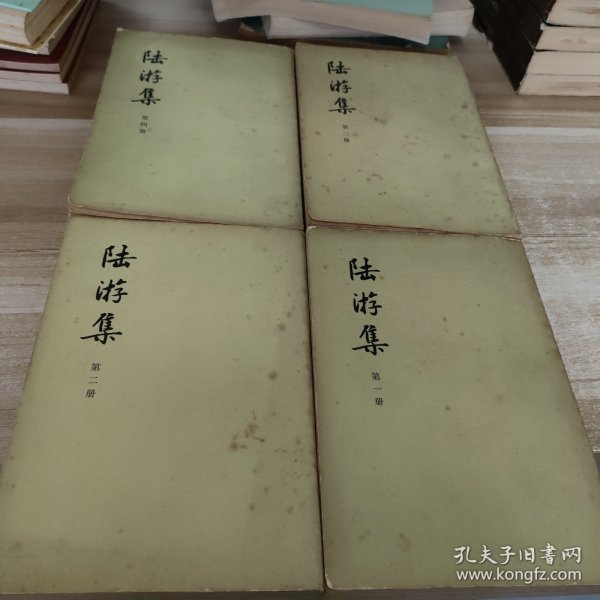 陆游集
第四册
陆游集
第三册
陆游集
第二册
陆游集
第一册
孔夫子旧书网
www.kongfz.com